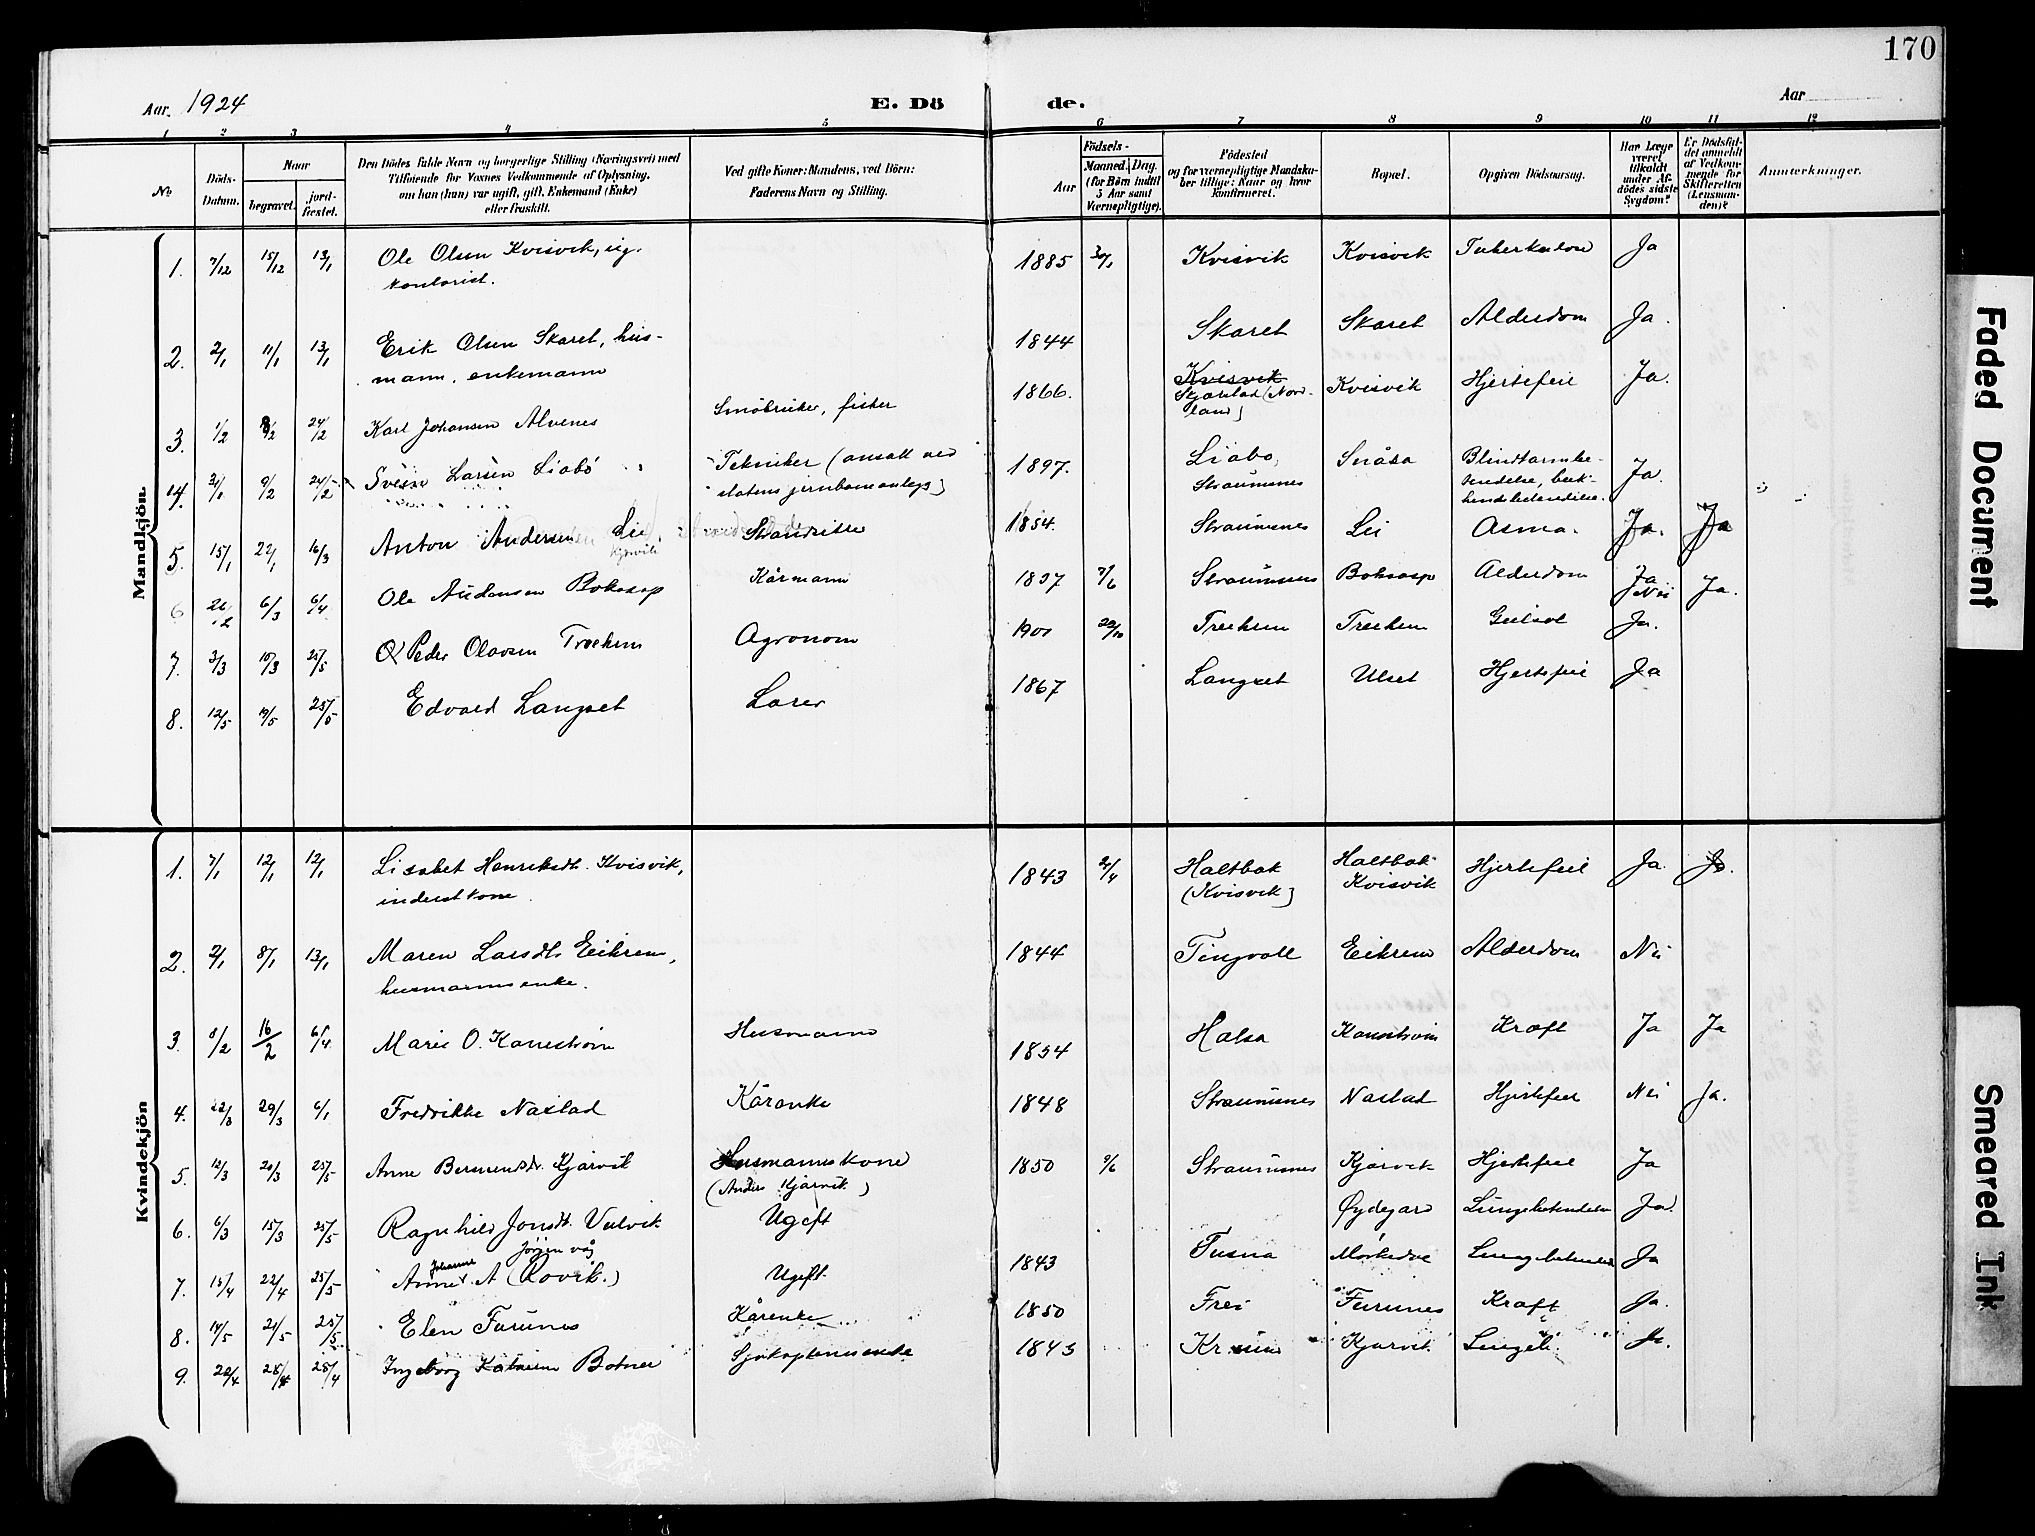 170
Aar. 1924 E. Dö de. Aar
1 2 3 4 5 6 7 8 9 10 11 12
No
Döds-Datum.
Naar
begravet.
jord-fæstet.
Den Dödes fulde Navn og borgerlige Stilling (Næringsvei) med
Tilføiende for Voxnes Vedkommende af Oplysning,
om han (hun) var ugift, gift, Enkemand (Enke)
eller fraskilt.
Ved gifte Koner: Mandens, ved Börn:
Faderens Navn og Stilling.
Aar
Födsels-
Maaned. Dag.
(for Børn indtil
5 Aar samt
Værnepligtige).
Födested
og for værnepligtige Mandskaber tillige: Naar og hvor
konfirmeret.
Bopæl.
Opgiven Dödsaarsag.
Har Læge
været
tilkaldt
under Afdödes sidste
Sygdom?
Er Dødsfaldet anmeldt
af Vedkommende for
Skifteretten
(Lensmanden)?
Anmærkninger.
Mandkjön.
1. 7/12 15/12 13/1 Ole Olsen Kvisvik, ug. 1885 30/1 Kvisvik Kvisvik Tuberkulose Ja
kontorist.
2. 2/1 11/1 13/1 Erik Olsen Skaret, hus- 1844 Skaret Skaret Alderdom Ja.
mann, enkemann
3. 1/2 8/2 24/2 Karl Johansen Alvenes Småbruker, fisker 1866. Kvisvik Kvisvik Hjertefeil Ja.
Skjærstad (Nord-
land)
4. 31/1 9/2 24/2 Sverre Larsen Liabö Tekniker (ansatt ved 1897. Liabö, Snåsa Blindtarmbe- Ja.
statens jernbaneanlegg) Straumsnes tendelse, buk-
hindebetendelse.
5. 15/1 22/1 16/3 Anton Andersen Lei Strandsitter 1854. Straumsnes Lei Asma. Ja. Ja
6 26/2 6/3 6/4 Ole Andersen Boksasp Kårmann 1837 7/6 Straumsnes Boksasp Alderdom Ja Nei Ja.
7. 3/3 10/3 25/5 Peder Olavsen Trækem Agronom 1900 20/10 Treekem Treekem Gulsot Ja.
8. 12/5 19/5 25/5 Edvard Langset Lærer 1867 Langset Ulset Hjertefeil Ja
Kvindekjön
1. 7/1 12/1 12/1 Lisabet Henriksdt. Kvisvik, 1843 2/4 Haltbak Haltbak Hjertefeil Ja. Ja.
inderstkone. (Kvisvik) Kvisvik
2. 2/1 8/1 13/1 Maren Larsdt. Eikrem, 1844 Tingvoll Eikrem Alderdom Nei
husmannsenke.
3. 8/2 16/2 6/4 Marie O. Kanestrøm Husmann 1854 Halsa Kanestrøm Kræft Ja Ja
4. 22/3 29/3 6/1 Fredrikke Nastad Kårenke 1848 Straumsnes Nastad Hjertefeil Nei Ja.
5. 12/3 20/3 25/5 Anne Berntsdt. Kjørvik Husmannskone 1850 9/6 Straumsnes Kjørvik Hjertefeil Ja
(Anders Kjørvik)
6. 6/3 15/3 25/5 Ragnhild Jonsdt. Vulvik Ugift Øydegard Lungebetendelse Ja.
Jørgenvåg
7. 15/4 22/4 25/5 Anne Johanne A (Rovik.) Ugift. 1843 Tusna Lungebetendelse Ja
8. 14/5 21/5 25/5 Elen Furunes Kårenke 1850 Frei Furunes Kræft Ja.
9. 20/4 28/4 28/4 Ingeborg Katrine Botner 1843 Kr.sun Kjørvik Ja.
Faded Document
Smeared Ink